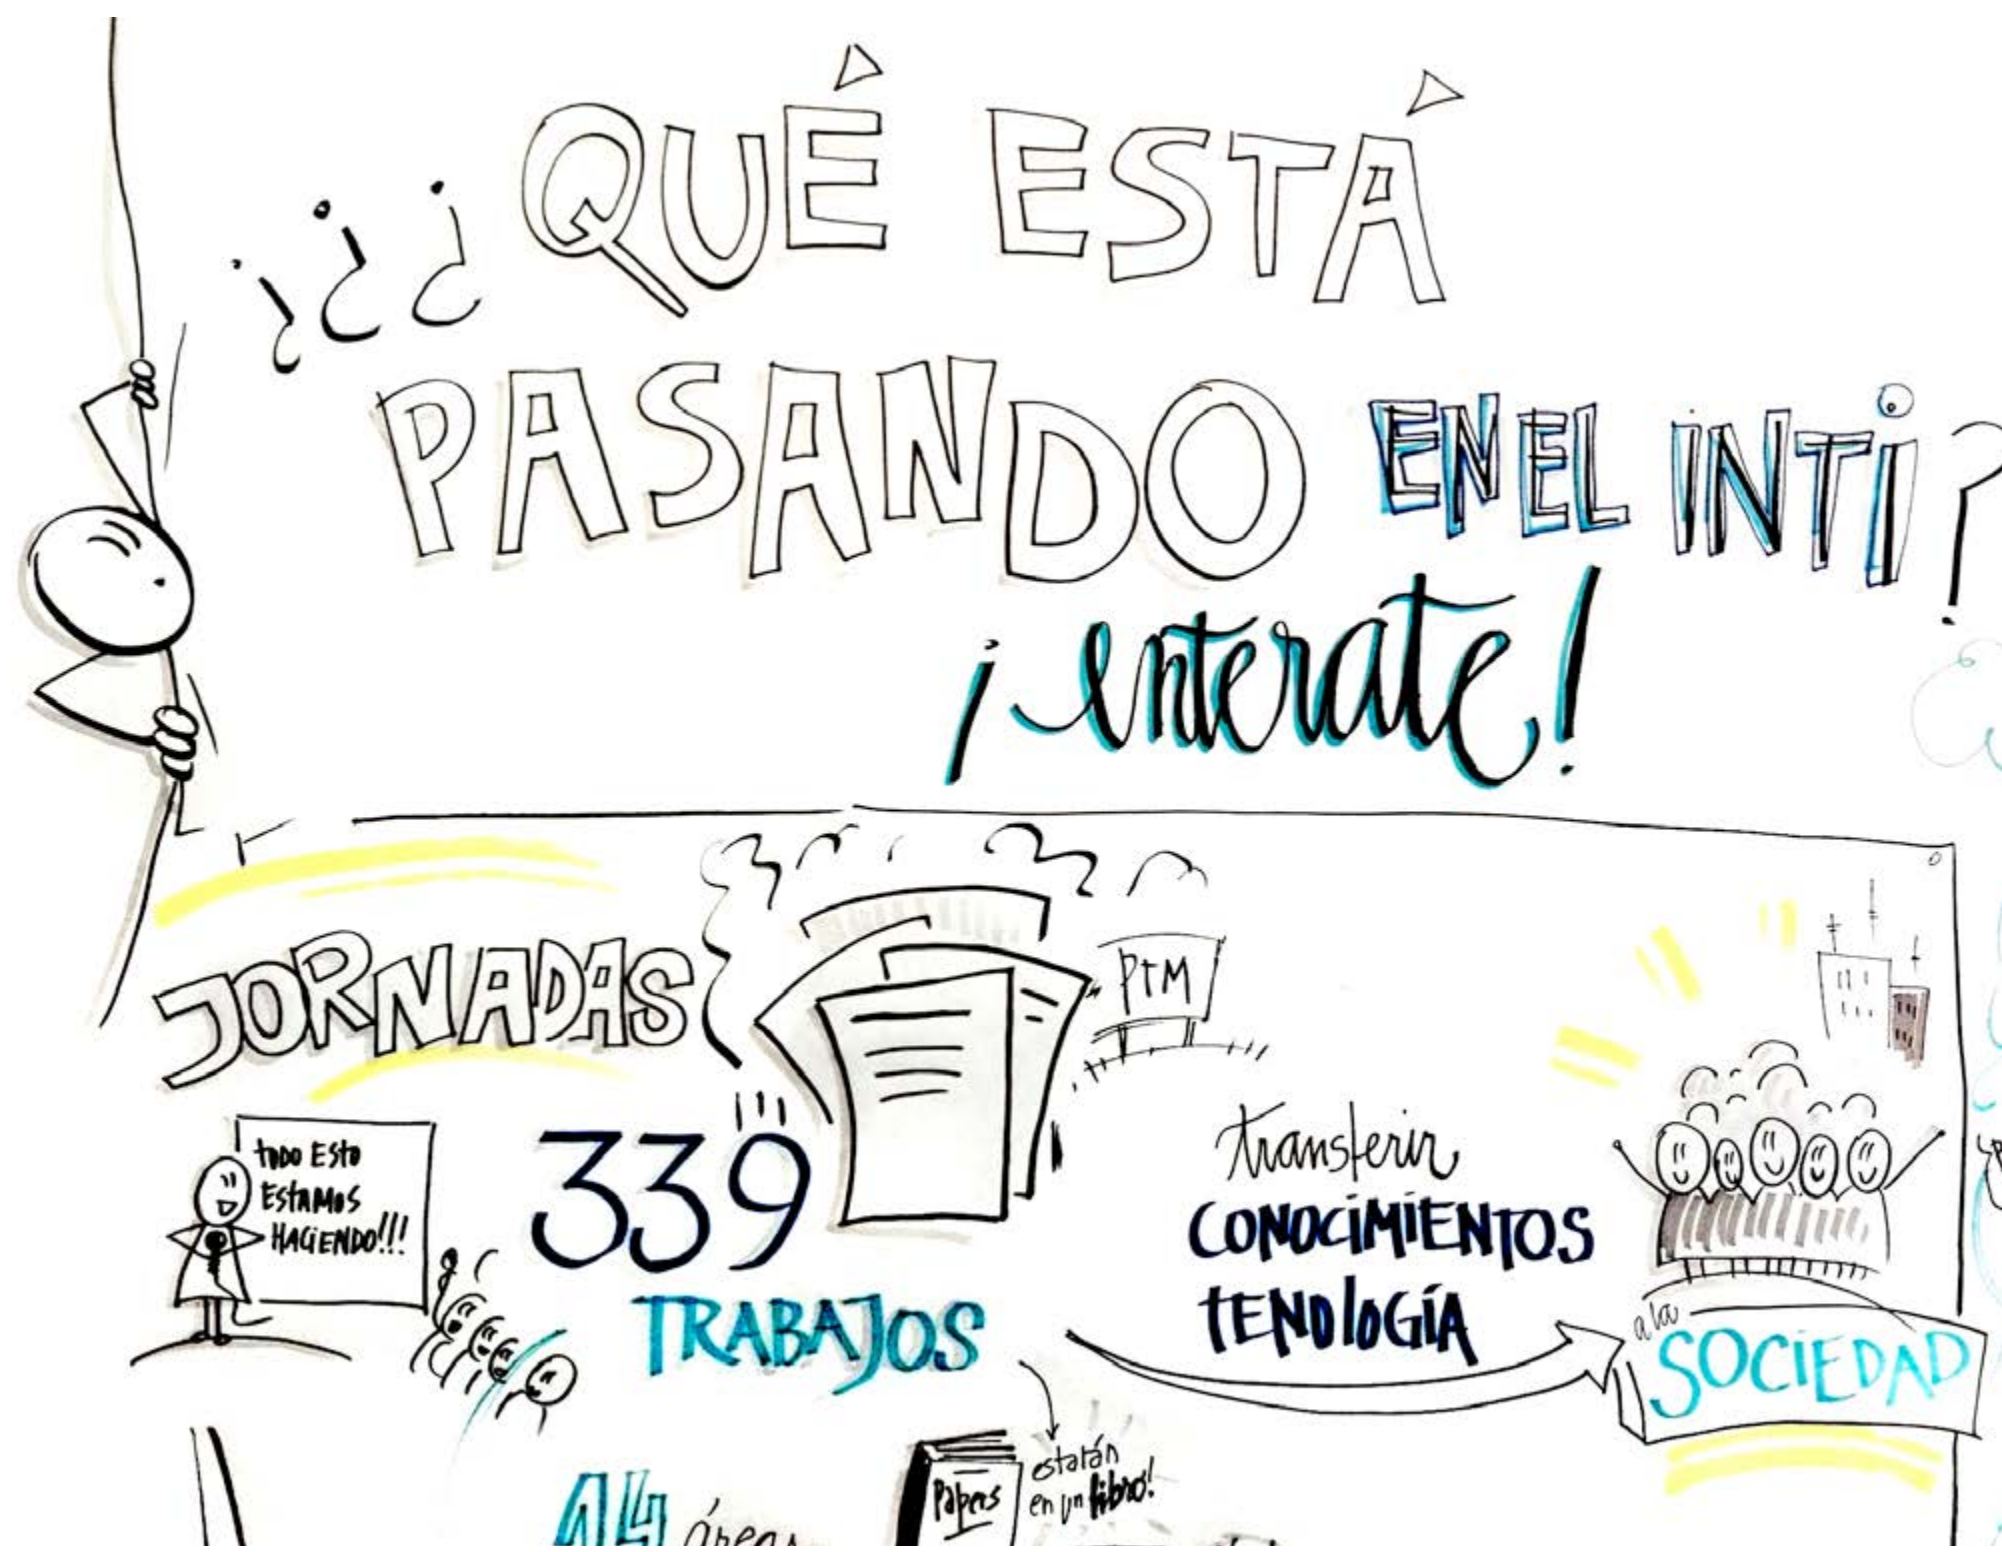 ¿¿¿QUÉ ESTÁ
PASANDO EN EL INTI?
¡enterate!
JORNADAS
PTM
TODO ESTO
ESTAMOS
HACIENDO!!!
339
TRABAJOS
transferir
CONOCIMIENTOS
TENOLOGÍA
a la
SOCIEDAD
14 áreas
Papers
estarán
en un libro!